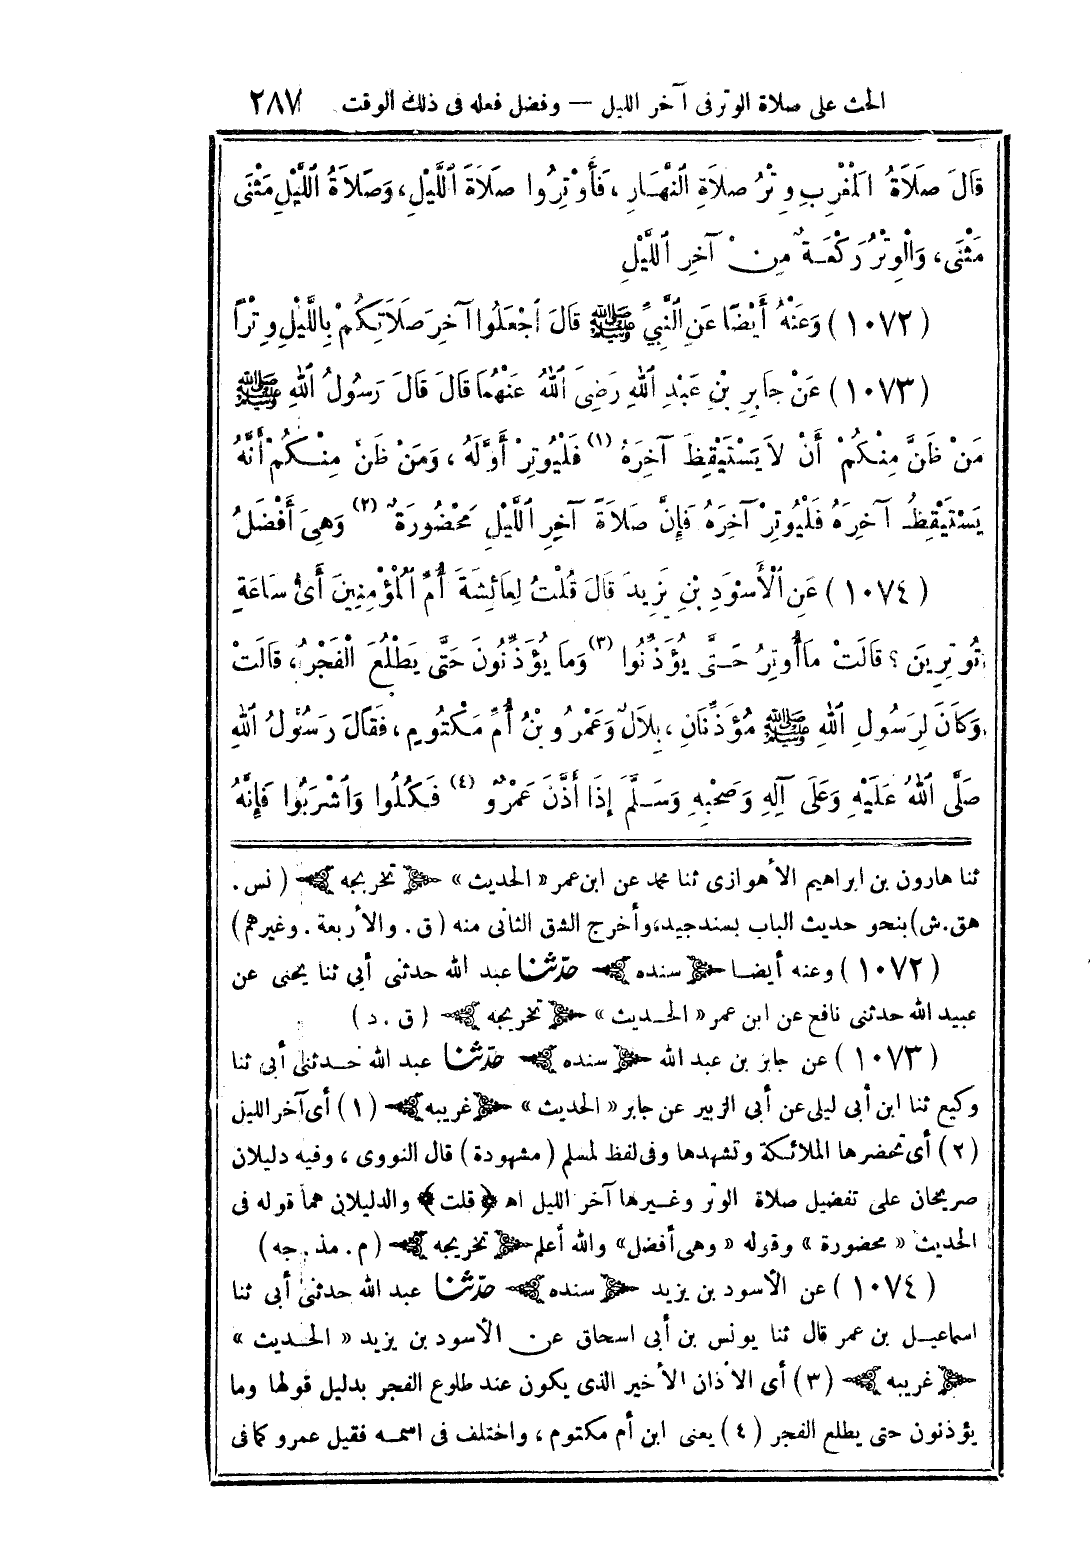 الحث على صلاة الوتر فى آخر الليل — وفضل فعله فى ذلك الوقت ٢٨٧
قَالَ صَلَاةُ الْمَغْرِبِ وِتْرُ صَلَاةِ النَّهَارِ، فَأَوْتِرُوا صَلَاةَ اللَّيْلِ، وَصَلَاةُ اللَّيْلِ مَثْنَى
مَثْنَى، وَالْوِتْرُ رَكْعَةٌ مِنْ آخِرِ اللَّيْلِ
(١٠٧٢) وَعَنْهُ أَيْضًا عَنِ النَّبِيِّ ﷺ قَالَ اجْعَلُوا آخِرَ صَلَاتِكُمْ بِاللَّيْلِ وِتْرًا
(١٠٧٣) عَنْ جَابِرِ بْنِ عَبْدِ اللهِ رَضِىَ اللهُ عَنْهُمَا قَالَ قَالَ رَسُولُ اللهِ ﷺ
مَنْ ظَنَّ مِنْكُمْ أَنْ لَا يَسْتَيْقِظَ آخِرَهُ (١) فَلْيُوتِرْ أَوَّلَهُ، وَمَنْ ظَنَّ مِنْكُمْ أَنَّهُ
يَسْتَيْقِظُ آخِرَهُ فَلْيُوتِرْ آخِرَهُ فَإِنَّ صَلَاةَ آخِرِ اللَّيْلِ مَحْضُورَةٌ (٢) وَهِىَ أَفْضَلُ
(١٠٧٤) عَنِ الْأَسْوَدِ بْنِ يَزِيدَ قَالَ قُلْتُ لِعَائِشَةَ أُمِّ الْمُؤْمِنِينَ أَىُّ سَاعَةٍ
تُوتِرِينَ؟ قَالَتْ مَا أُوتِرُ حَتَّى يُؤَذِّنُوا (٣) وَمَا يُؤَذِّنُونَ حَتَّى يَطْلُعَ الْفَجْرُ، قَالَتْ
وَكَانَ لِرَسُولِ اللهِ ﷺ مُؤَذِّنَانِ، بِلَالٌ وَعَمْرُو بْنُ أُمِّ مَكْتُومٍ، فَقَالَ رَسُولُ اللهِ
صَلَّى اللهُ عَلَيْهِ وَعَلَى آلِهِ وَصَحْبِهِ وَسَلَّمَ إِذَا أَذَّنَ عَمْرٌو (٤) فَكُلُوا وَاشْرَبُوا فَإِنَّهُ
ثنا هارون بن ابراهيم الأهوازى ثنا محمد عن ابن عمر «الحديث» ﴿تخريجه﴾ (نس.
هق.ش) بنحو حديث الباب بسند جيد، وأخرج الشق الثانى منه (ق. والأربعة. وغيرهم)
(١٠٧٢) وعنه أيضا ﴿سنده﴾ حدّثنا عبد الله حدثنى أبى ثنا يحيى عن
عبيد الله حدثنى نافع عن ابن عمر «الحديث» ﴿تخريجه﴾ (ق. د)
(١٠٧٣) عن جابر بن عبد الله ﴿سنده﴾ حدّثنا عبد الله حدثنى أبى ثنا
وكيع ثنا ابن أبى ليلى عن أبى الزبير عن جابر «الحديث» ﴿غريبه﴾ (١) أى آخر الليل
(٢) أى تحضرها الملائكة وتشهدها وفى لفظ لمسلم (مشهودة) قال النووى، وفيه دليلان
صريحان على تفضيل صلاة الوتر وغيرها آخر الليل اه ﴿قلت﴾ والدليلان هما قوله فى
الحديث «محضورة» وقوله «وهى أفضل» والله أعلم ﴿تخريجه﴾ (م. مذ. جه)
(١٠٧٤) عن الأسود بن يزيد ﴿سنده﴾ حدّثنا عبد الله حدثنى أبى ثنا
اسماعيل بن عمر قال ثنا يونس بن أبى اسحاق عن الأسود بن يزيد «الحديث»
﴿غريبه﴾ (٣) أى الأذان الأخير الذى يكون عند طلوع الفجر بدليل قولها وما
يؤذنون حتى يطلع الفجر (٤) يعنى ابن أم مكتوم، واختلف فى اسمه فقيل عمرو كما فى